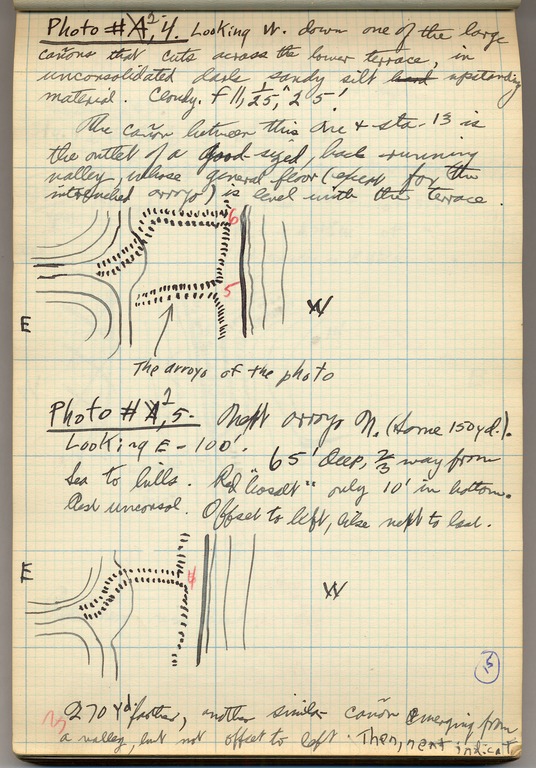 Photo #A², 4. Looking W. down one of the large
cañons that cuts across the lower terrace, in
unconsolidated dark sandy silt hard upstanding
material. Cloudy. f 11, 1/25, ^ 25'.
The cañon between this one & sta. 13 is
the outlet of a good-sized, back running
valley, whose general floor (except for the
intrenched arroyo) is level with the terrace.
6
5
E
W
The arroyo of the photo
Photo #A², 5. Next arroyo N. (some 150 yd.).
Looking E - 100'.
65' deep, 2/3 way from
sea to hills. Red "basalt" only 10' in bottom.
Rest unconsol. Offset to left, like next to last.
E
4
W
5
270 yd. farther, another similar cañon emerging from
a valley, but not offset to left. Then, next indicat